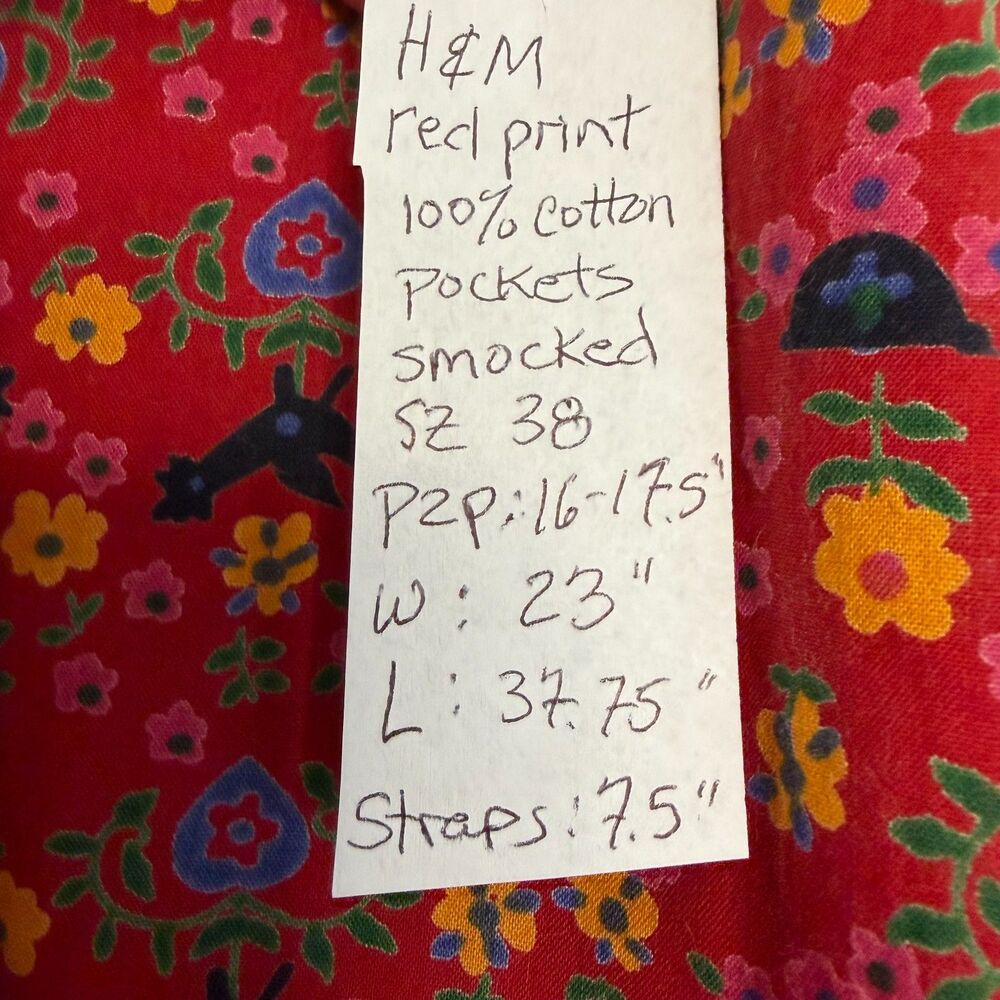 H&M
red print
100% cotton
pockets
smocked
SZ 38
P2P: 16-17.5"
W: 23"
L: 37.75"
Straps: 7.5"